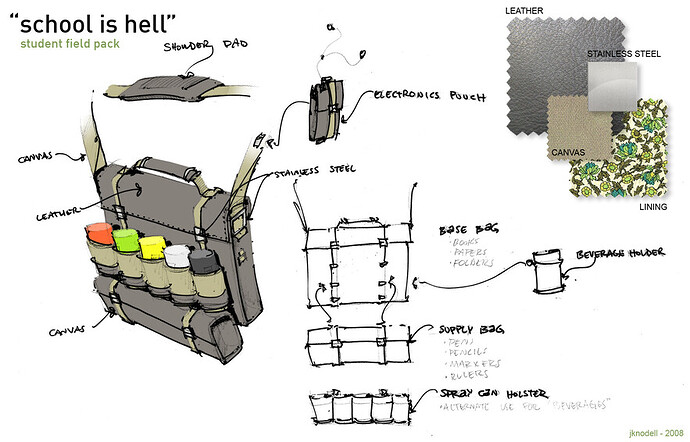 “school is hell”
student field pack
SHOULDER PAD
ELECTRONICS POUCH
CANVAS
LEATHER
STAINLESS STEEL
CANVAS
LEATHER
STAINLESS STEEL
CANVAS
LINING
BASE BAG
· BOOKS
· PAPERS
· FOLDERS
BEVERAGE HOLDER
SUPPLY BAG
• PENS
• PENCILS
• MARKERS
• RULERS
SPRAY CAN HOLSTER
• ALTERNATE USE FOR "BEVERAGES"
jknodell - 2008